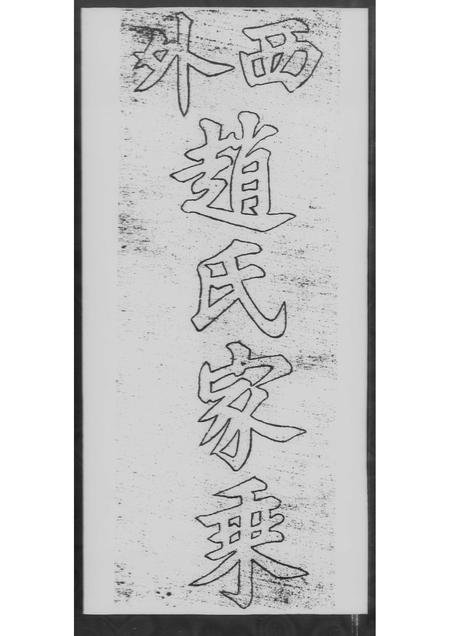 西外
趙氏家乘